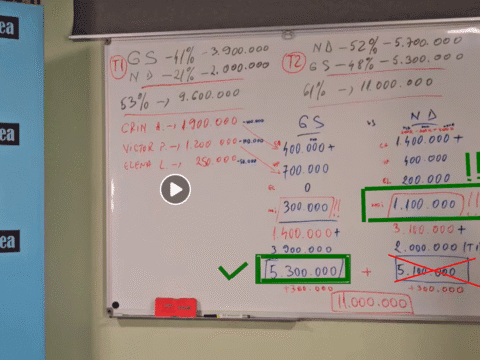 ea
ea
ea
T1
GS - 41% - 3.900.000
ND - 21% - 2.000.000
53% → 9.600.000
T2
ND - 52% - 5.700.000
GS - 48% - 5.300.000
61% → 11.000.000
CRIN A. → 1.900.000
VICTOR P. → 1.200.000
ELENA L. → 250.000
GS
400.000 +
700.000
EL 0
300.000 !!
1.400.000 +
3.900.000
5.300.000
+300.000
vs
ND
CA 1.400.000 +
VP 400.000
EL 200.000
1.100.000 !!
3.100.000 +
2.000.000 (T1
5.100.000
+300.000
+
11.000.000